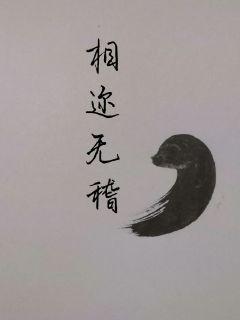 相迩无稽